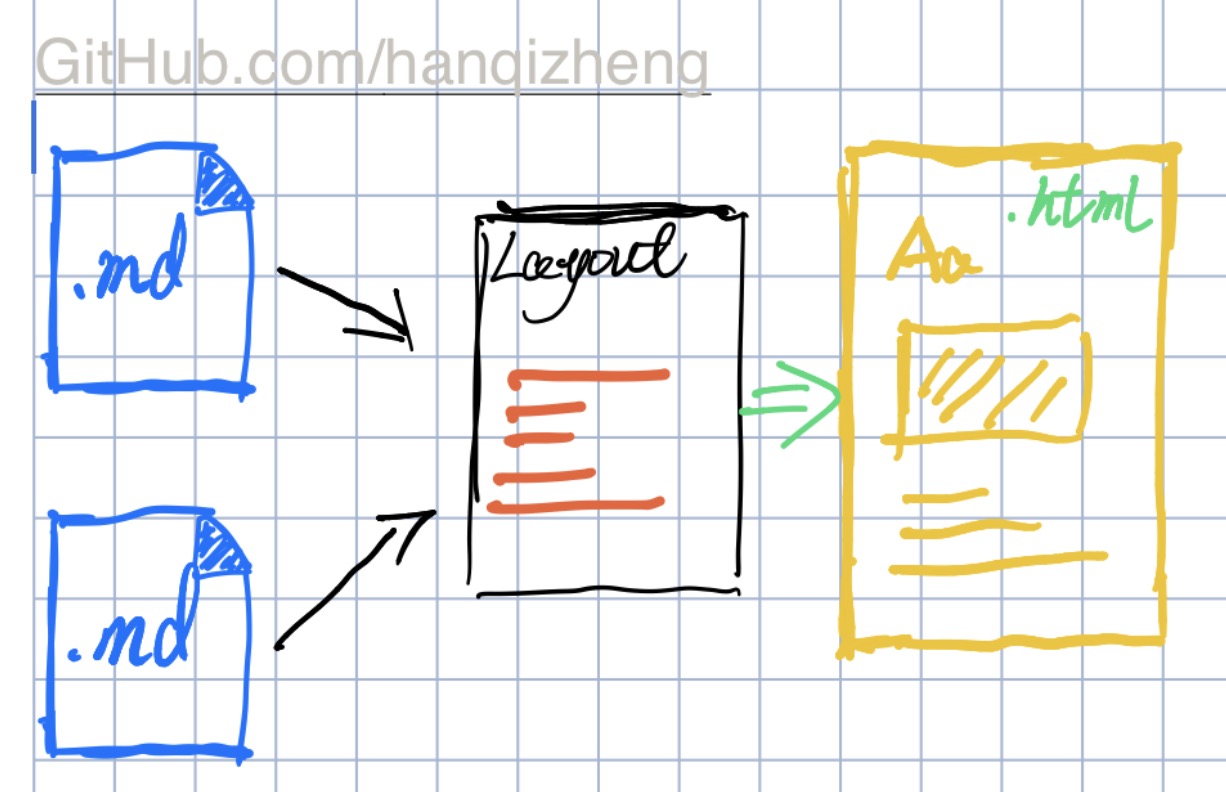 GitHub.com/hanqizheng
.md
Layout
.html
Aa
.md